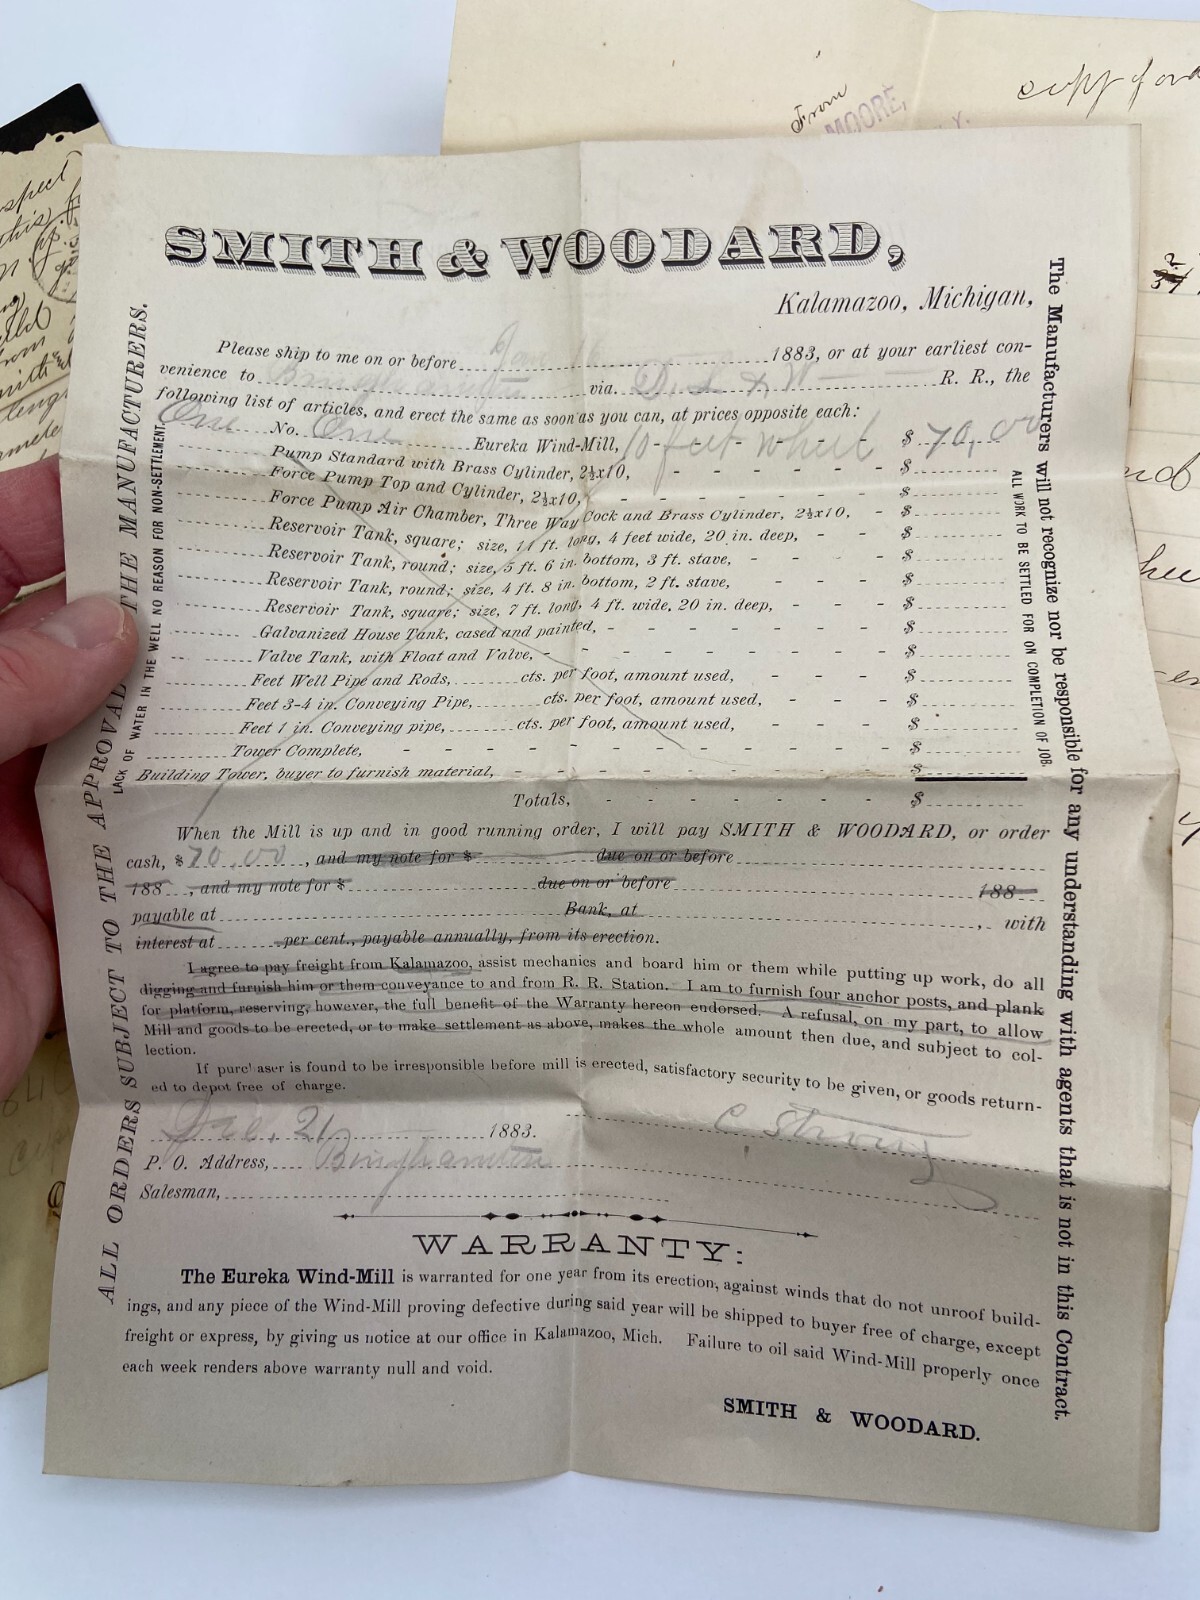 From
MOORE,
copy of
SMITH & WOODARD,
Kalamazoo, Michigan,
Please ship to me on or before 1883, or at your earliest con-
venience to Binghamton via. D. L & W R. R., the
following list of articles, and erect the same as soon as you can, at prices opposite each:
One No. One Eureka Wind-Mill, 10 feet wheel $ 70,00
Pump Standard with Brass Cylinder, 2½x10, $
Force Pump Top and Cylinder, 2½x10, $
Force Pump Air Chamber, Three Way Cock and Brass Cylinder, 2½x10, $
Reservoir Tank, square; size, 11 ft. long, 4 feet wide, 20 in. deep, $
Reservoir Tank, round; size, 5 ft. 6 in. bottom, 3 ft. stave, $
Reservoir Tank, round; size, 4 ft. 8 in. bottom, 2 ft. stave, $
Reservoir Tank, square; size, 7 ft. long, 4 ft. wide, 20 in. deep, $
Galvanized House Tank, cased and painted, $
Valve Tank, with Float and Valve, $
Feet Well Pipe and Rods, cts. per foot, amount used, $
Feet 3-4 in. Conveying Pipe, cts. per foot, amount used, $
Feet 1 in. Conveying pipe, cts. per foot, amount used, $
Tower Complete, $
Building Tower, buyer to furnish material, $
Totals, $
When the Mill is up and in good running order, I will pay SMITH & WOODARD, or order
cash, $ 70.00, and my note for $ due on or before
188 , and my note for $ due on or before 188
payable at Bank, at , with
interest at per cent., payable annually, from its erection.
I agree to pay freight from Kalamazoo, assist mechanics and board him or them while putting up work, do all
digging and furnish him or them conveyance to and from R. R. Station. I am to furnish four anchor posts, and plank
for platform, reserving, however, the full benefit of the Warranty hereon endorsed. A refusal, on my part, to allow
Mill and goods to be erected, or to make settlement as above, makes the whole amount then due, and subject to col-
lection.
If purc aser is found to be irresponsible before mill is erected, satisfactory security to be given, or goods return-
ed to depot free of charge.
Dec. 21 1883. C. Strong
P. O. Address, Binghamton
Salesman,
WARRANTY:
The Eureka Wind-Mill is warranted for one year from its erection, against winds that do not unroof build-
ings, and any piece of the Wind-Mill proving defective during said year will be shipped to buyer free of charge, except
freight or express, by giving us notice at our office in Kalamazoo, Mich. Failure to oil said Wind-Mill properly once
each week renders above warranty null and void.
SMITH & WOODARD.
ALL ORDERS SUBJECT TO THE APPROVAL THE MANUFACTURERS.
LACK OF WATER IN THE WELL NO REASON FOR NON-SETTLEMENT.
ALL WORK TO BE SETTLED FOR ON COMPLETION OF JOB.
The Manufacturers will not recognize nor be responsible for any understanding with agents that is not in this Contract.